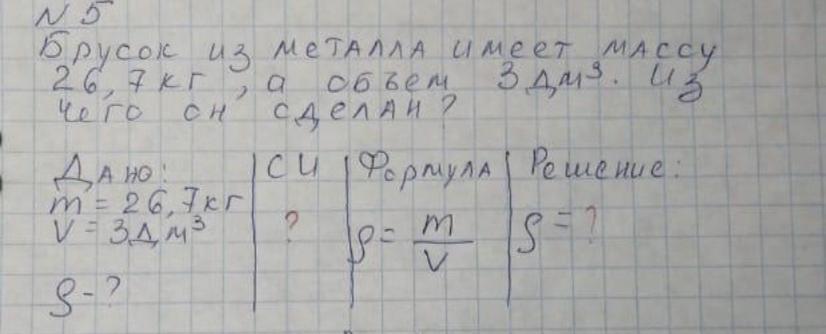 N 5
Брусок из металла имеет массу
26,7 кг, а объем 3 дм³. Из
чего он сделан?
Дано: СИ Формула Решение:
m = 26,7 кг
V = 3 дм³ ? ρ = m/V ρ = ?
ρ - ?